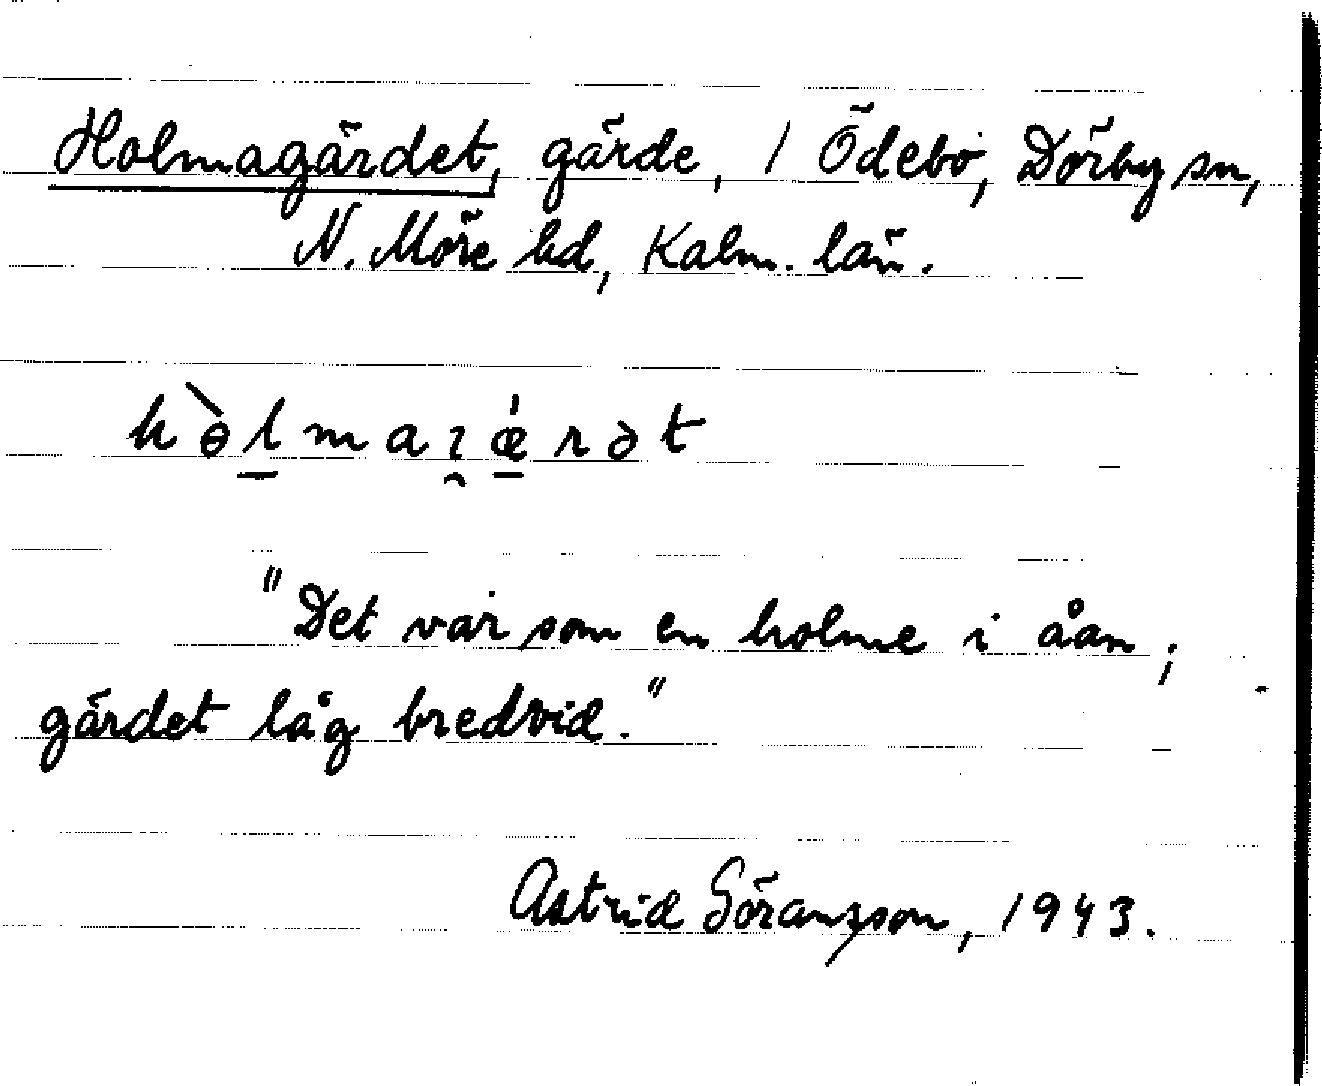 Holmagärdet, gärde, 1 Ödebo, Dörby sn,
N. Möre hd, Kalm. län.
hɵ̀l̠maɿ̯ǽ̠rət
"Det var som en holme i åan;
gärdet låg bredvid."
Astrid Göranzson, 1943.